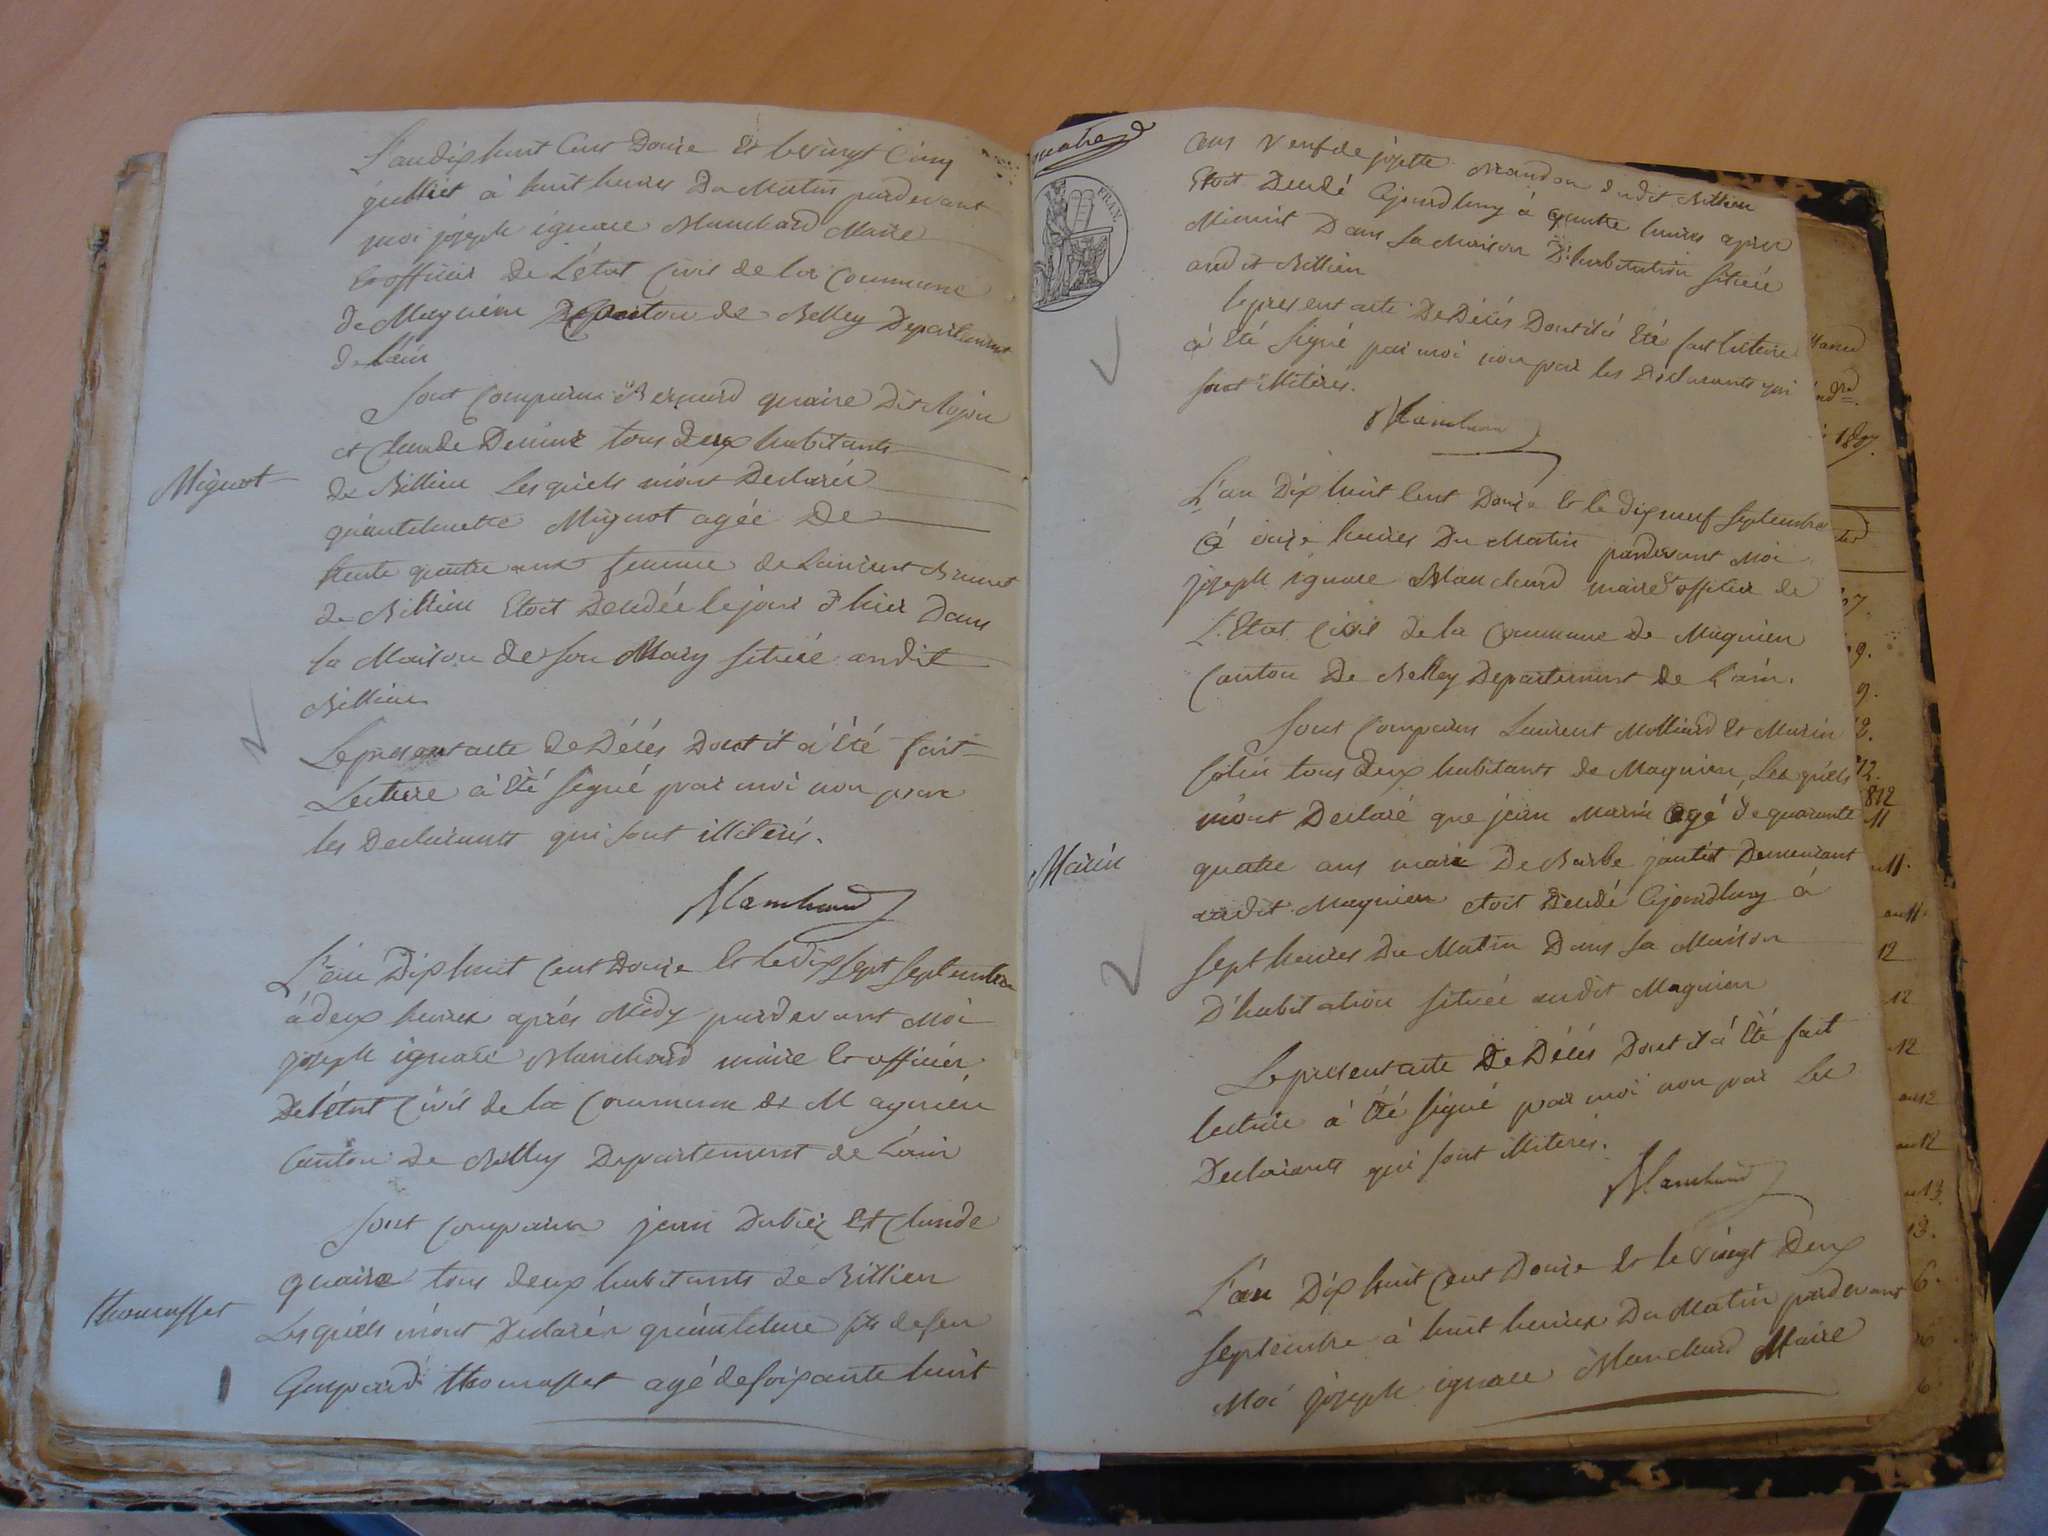 L'an dix huit Cent Douze et le vingt Cinq
juilliet à huit heures Du Matin pardevant
moi joseph ignace Blanchard Maire
et officier de L'état Civil de la Commune
de Magnieu Canton de Belley Departement
de L'ain
Sont Comparus Bernard quaire Dit
et Claude tous deux habitants
de Billieu Les quiels m'ont Declarés
Mignot
qu'antelmette Mignot agée De
trente quatre ans femme de Laurent Brunet
de Billieu Etoit Decedée le jour d'hier Dans
la Maison de son Mary située audit
Billieu
Le present acte de Décés Dont il a été fait
Lecture à été signé par moi non par
les Declarants qui sont illiterés.
Blanchard
L'an Dix huit Cent Douze et le dix sept septembre
à deux heures aprés Midy pardevant Moi
joseph ignace Blanchard maire et officier
De l'état Civil de la Commune de Magnieu
Canton De Belley Departement de L'ain
Sont comparus jean Dubiez Et Claude
quaire tous deux habitants de Billieu
thomasset
Les quiels m'ont Declarés qu'antelme fils de feu
Gaspard thomasset agé de soixante huit
ans veuf de josette dudit Billieu
Etoit Decedé Cejourdhuy à quatre heures aprés
Minuit Dans sa Maison D'habitation située
audit Billieu
le present acte De Décés Dont il à Eté fait lecture
à Eté signé par moi non par les Declarants qui
sont illiterés.
Blanchard
L'an Dix huit Cent Douze et le dix neuf septembre
à onze heures Du Matin pardevant Moi
joseph ignace Blanchard maire et officier de
L'Etat Civil de la Commune de Magnieu
Canton De Belley Departement de L'ain.
Sont Comparus Laurent Molliard Et Marin
tous deux habitants de Magnieu, Les quiels
m'ont Declaré que jean Marin agé de quarante
Marin
quatre ans mari De Barbe Demeurant
audit Magnieu etoit Decedé Cejourdhuy à
sept heures Du Matin Dans sa Maison
D'habitation située audit Magnieu
Le present acte De Décés Dont il à Eté fait
lecture à Eté signé par moi non par Les
Declarants qui sont illiterés.
Blanchard
L'an Dix huit Cent Douze et le vingt Deux
septembre à huit heures Du Matin pardevant
Moi joseph ignace Blanchard Maire